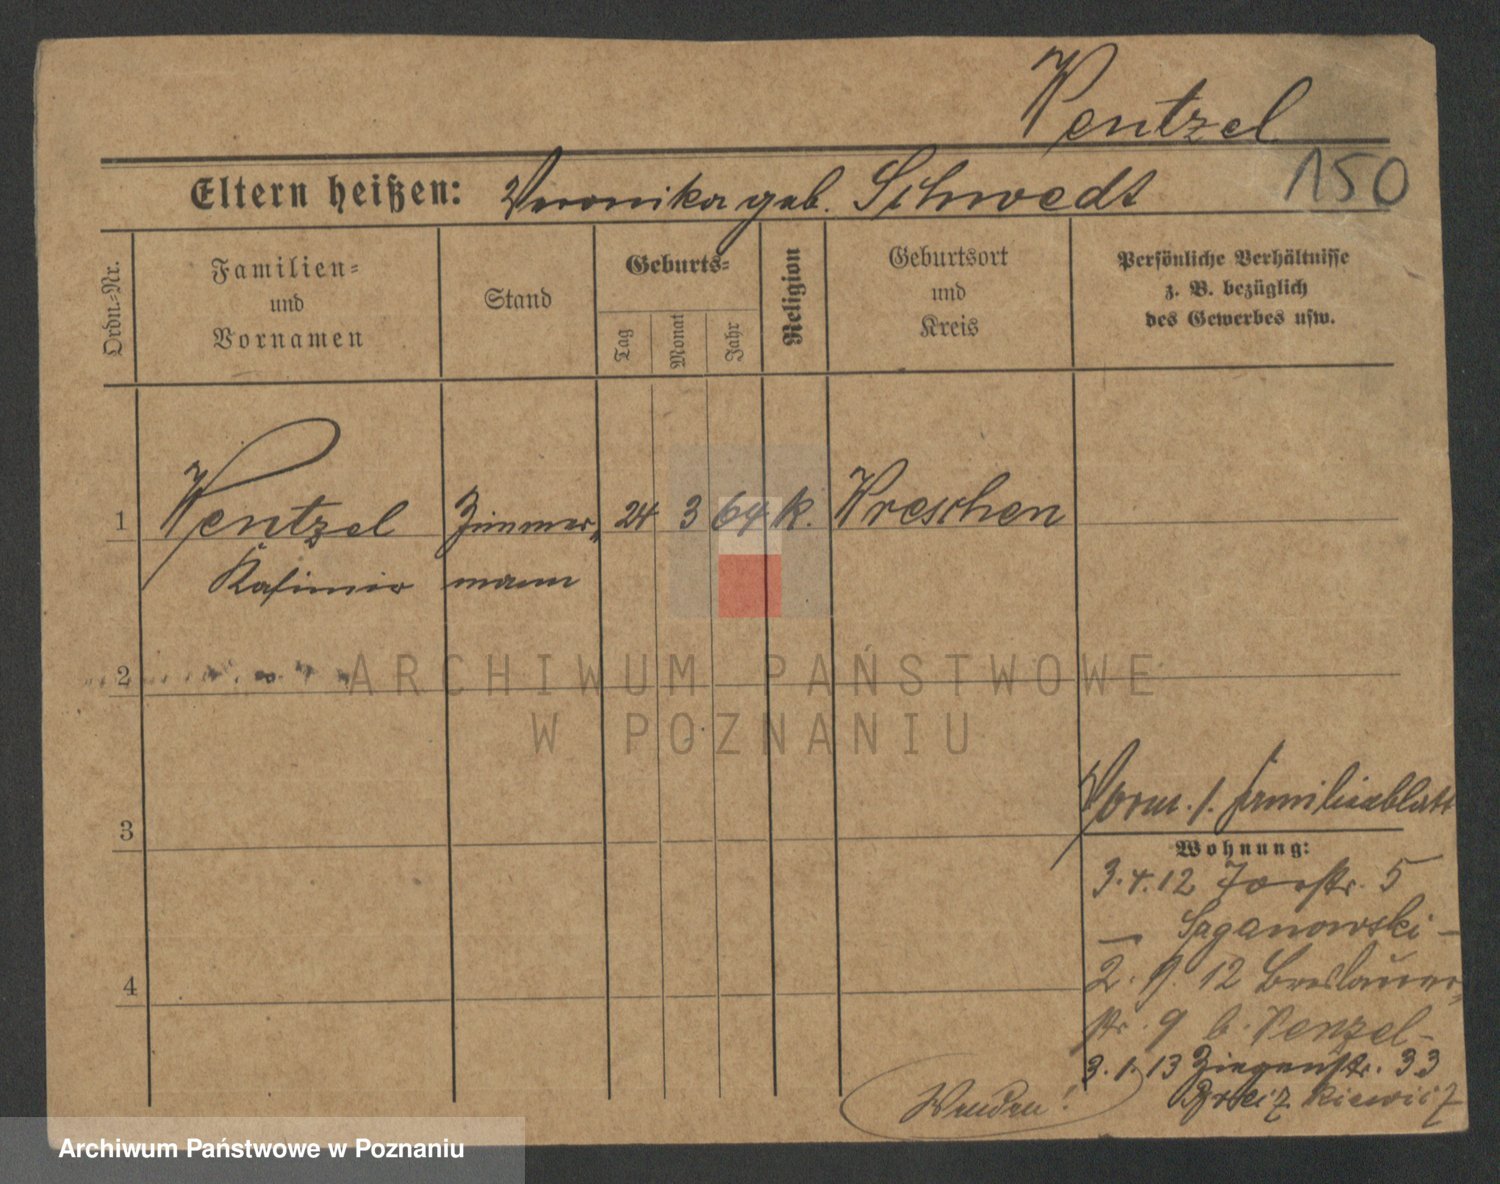 Wentzel
150
Eltern heißen: Veronika geb. Schwedt
Ordn.-Nr.
Familien-
und
Vornamen
Stand
Geburts-
Tag
Monat
Jahr
Religion
Geburtsort
und
Kreis
Persönliche Verhältnisse
z. B. bezüglich
des Gewerbes usw.
1 Wentzel Zimmer„ 24 3 64 k. Wreschen
Kasimir mann
2
3
4
Verm. s. Familienblatt
Wohnung:
3.4.12 5
— Saganowski –
2. 9. 12 Breslauer„
str. 9 b. Wenzel –
3. 1. 13 Ziegenstr. 33
Wenden!
ARCHIWUM PAŃSTWOWE
W POZNANIU
Archiwum Państwowe w Poznaniu